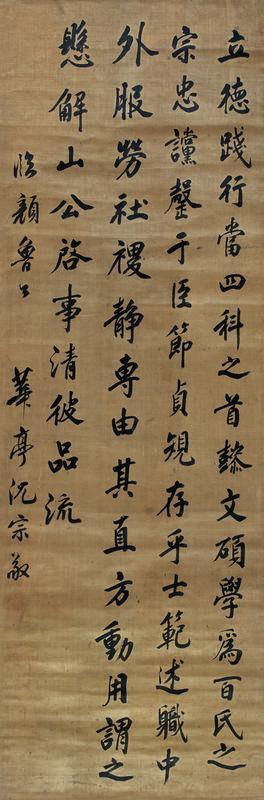 立德踐行當四科之首懿文碩學為百氏之
宗忠讜罄于臣節貞規存乎士範述職中
外服勞社稷靜專由其直方動用謂之
懸解山公啓事清彼品流
臨顏魯公 華亭沈宗敬